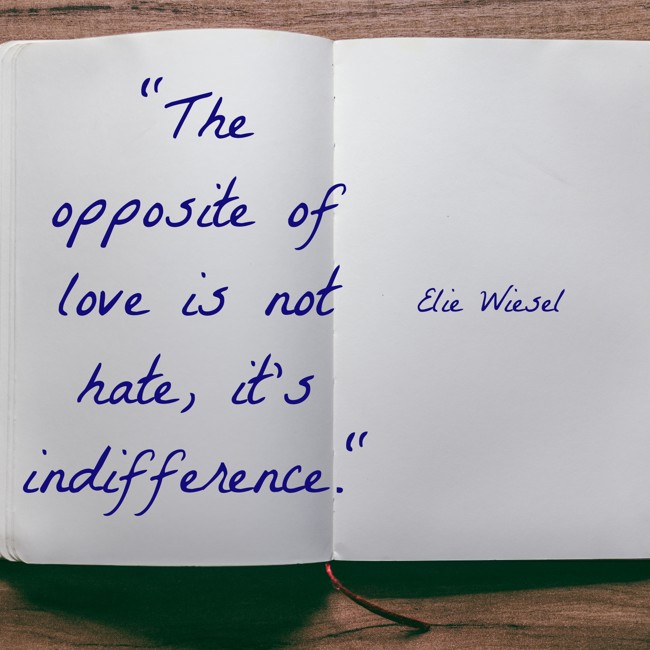 “The
opposite of
love is not
hate, it's
indifference.“
Elie Wiesel